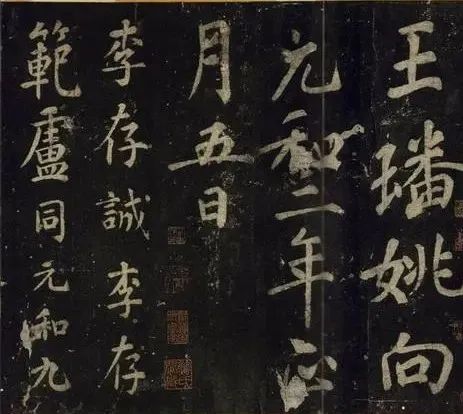 王璠姚向
元和二年正
月五日
李存誠李存
範盧同元和九